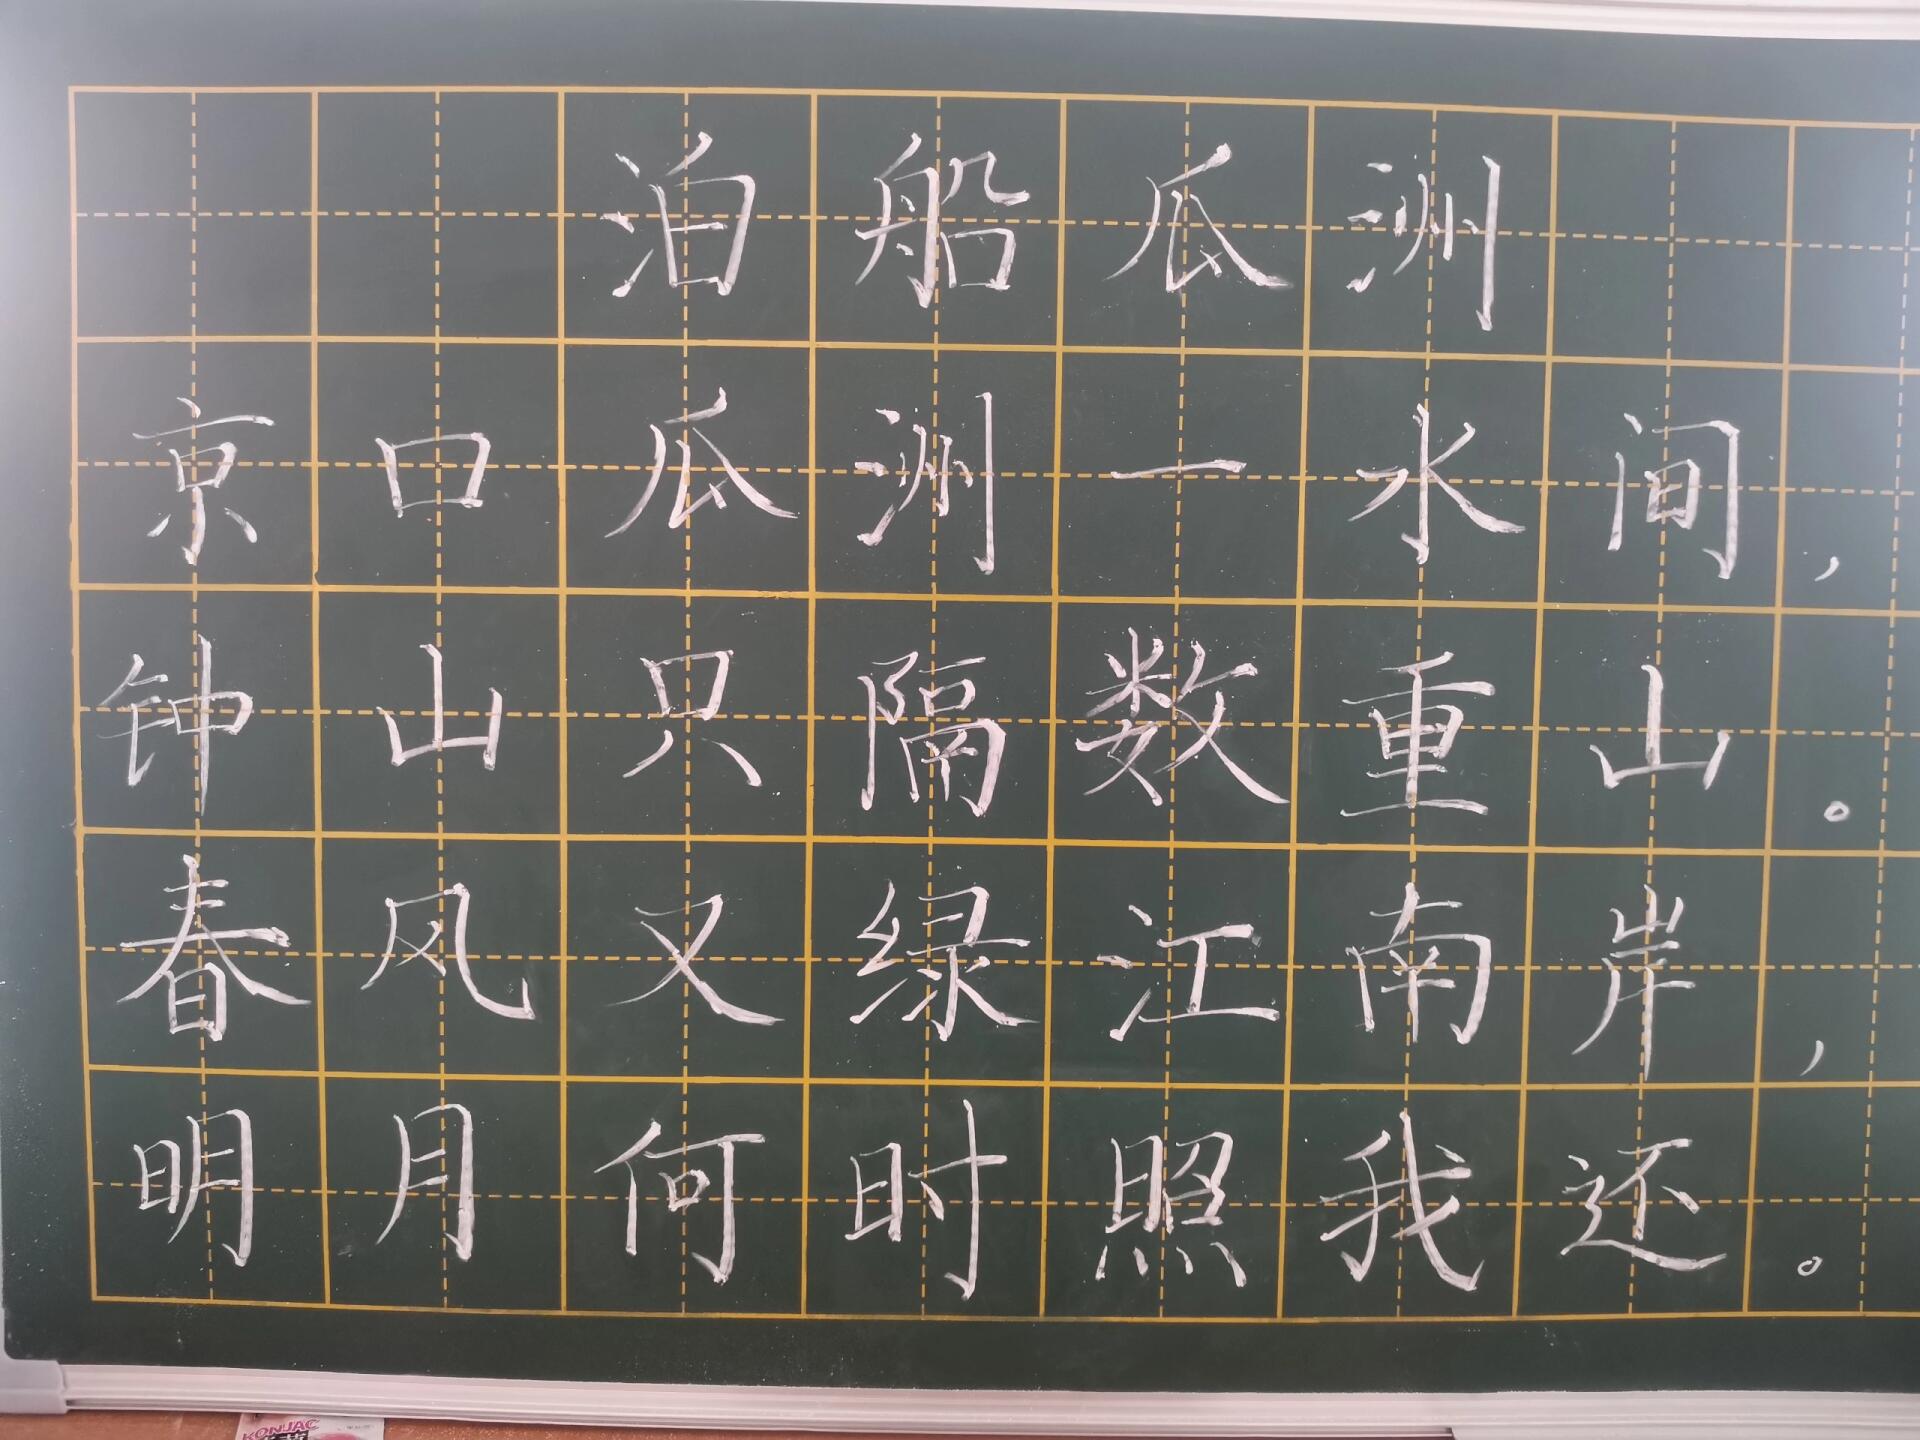 泊船瓜洲
京口瓜洲一水间,
钟山只隔数重山。
春风又绿江南岸,
明月何时照我还。
KONJAC